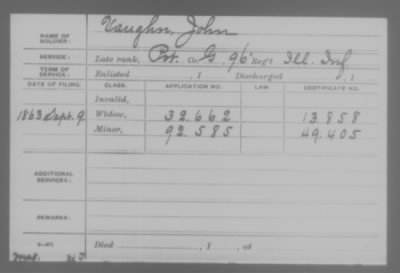 NAME OF SOLDIER: Vaughn, John
SERVICE: Late rank, Pvt. Co. G, 96 Reg't Ill. Inf
TERM OF SERVICE: Enlisted , 1 Discharged , 1
DATE OF FILING. CLASS. APPLICATION NO. LAW. CERTIFICATE NO.
Invalid,
1863 Sept. 9. Widow, 32.662 13.858
Minor, 92.585 49.405
ADDITIONAL SERVICES:
REMARKS:
Died , 1 , at